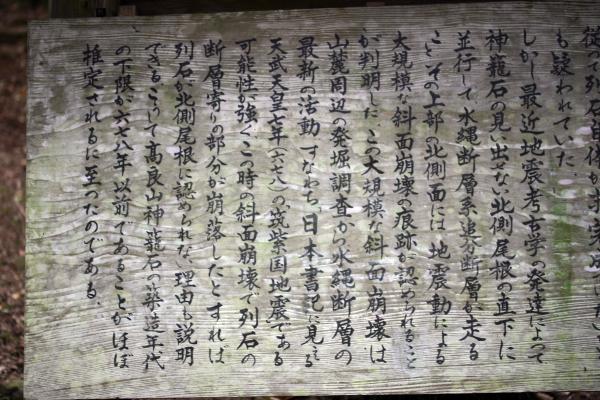 従つて列石自体が未完成
も疑われていた。
しかし最近地震考古学の発達によって
神籠石の見い出せない北側尾根の直下に
並行して水縄断層系追分断層が走る
こと、その上部の北側面には、地震動による
大規模な斜面崩壊の痕跡が認められること
が判明した。この大規模な斜面崩壊は
山麓周辺の発掘調査から水縄断層の
最新の活動、すなわち日本書記に見える
天武天皇七年(六七八)の筑紫国地震である
可能性が強く、この時の斜面崩壊で列石の
断層寄りの部分が崩落したとすれば
列石が北側尾根に認められない理由も説明
できる。こうして高良山神籠石の築造年代
の下限が六七八年以前であることがほぼ
推定されるに至ったのである。